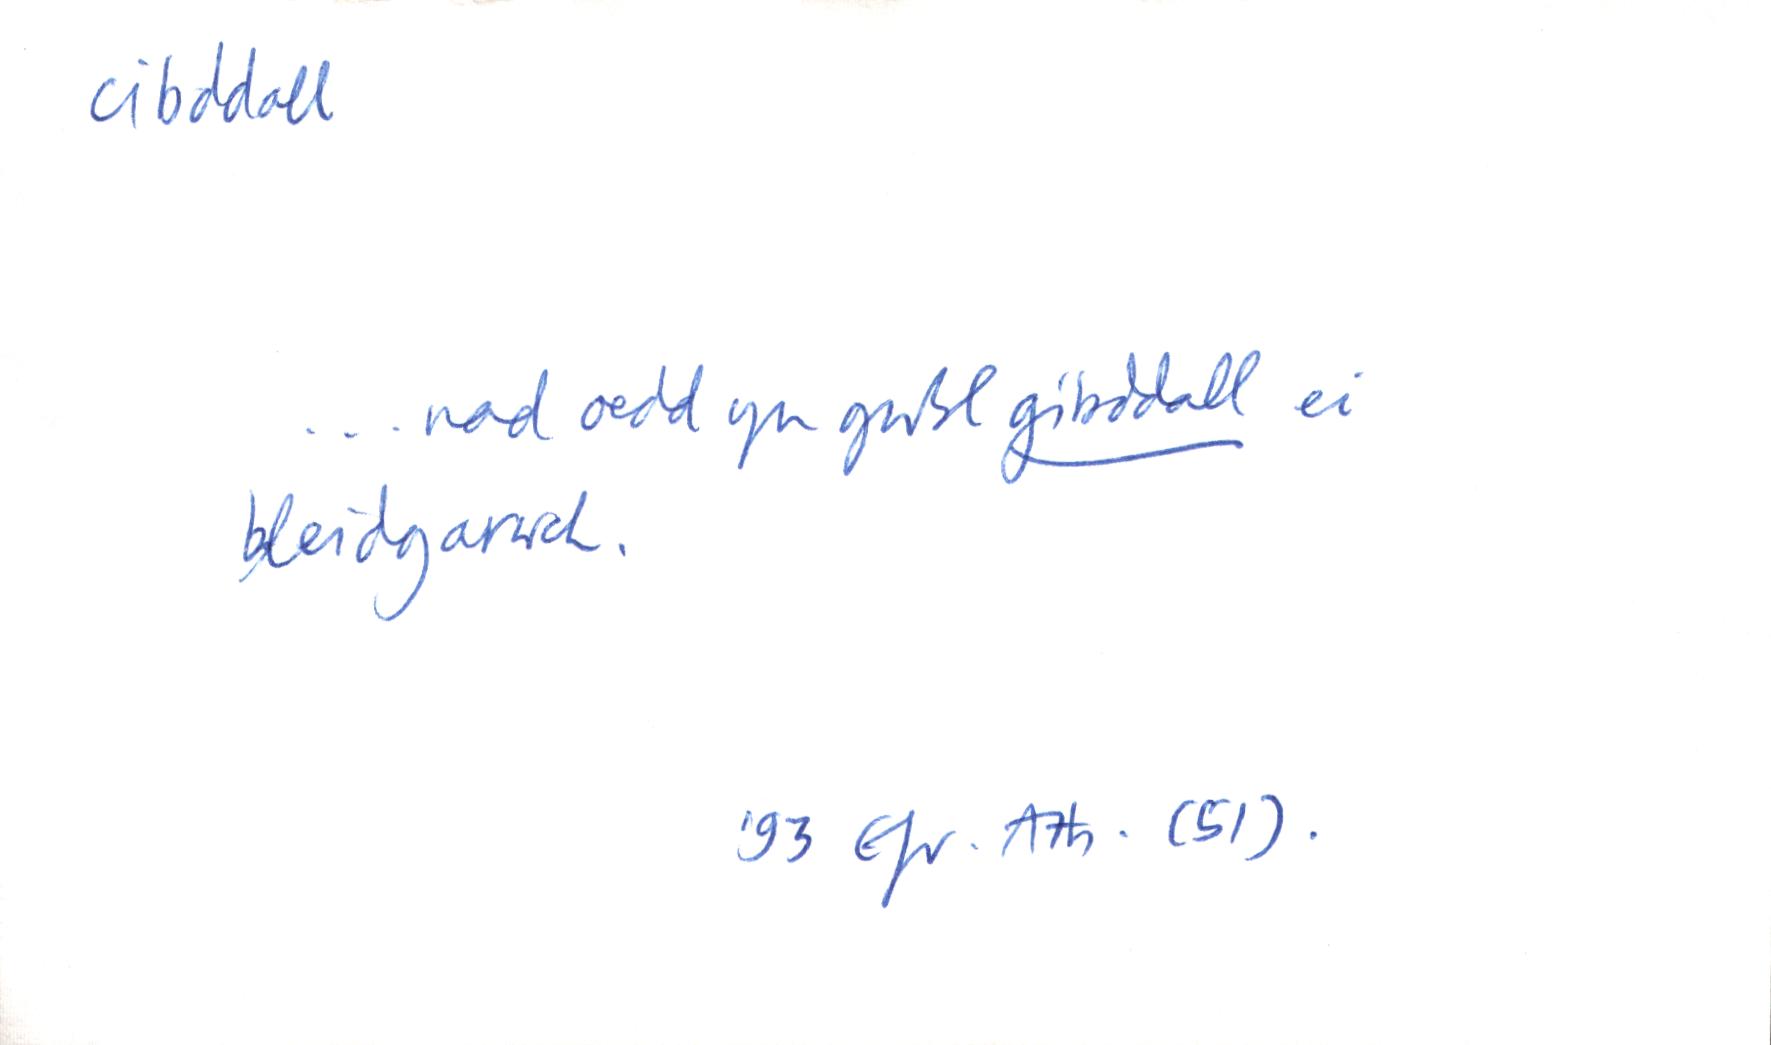 cibddall
... nad oedd yn gwbl gibddall ei
bleidgarwch.
'93 Efr. Ath. (51).